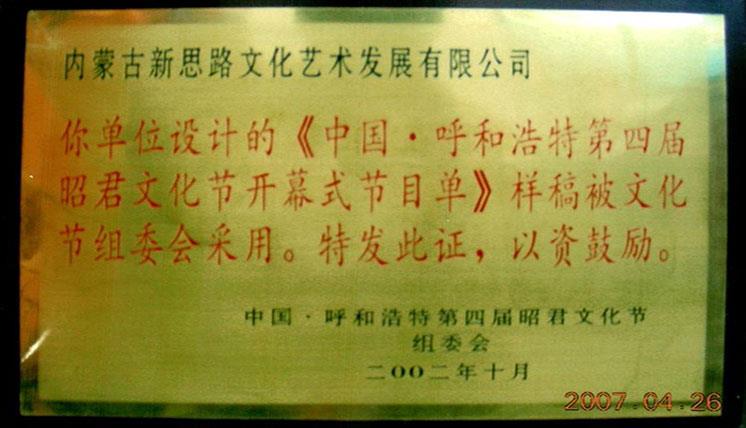 内蒙古新思路文化艺术发展有限公司
你单位设计的《中国·呼和浩特第四届
昭君文化节开幕式节目单》样稿被文化
节组委会采用。特发此证，以资鼓励。
中国·呼和浩特第四届昭君文化节
组委会
二OO二年十月
2007.04.26